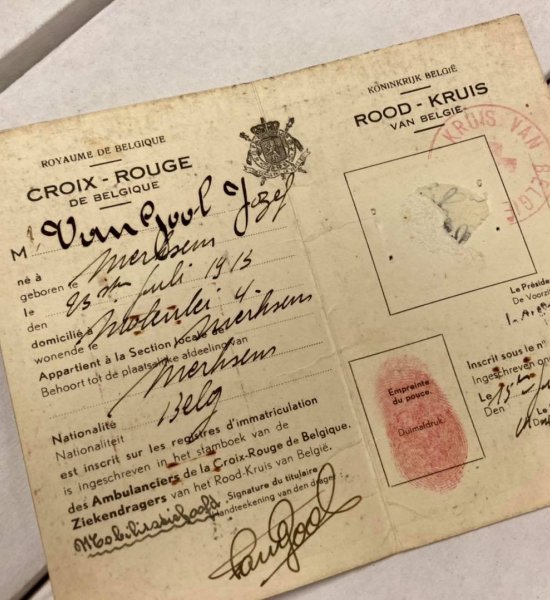 ROYAUME DE BELGIQUE
CROIX - ROUGE
DE BELGIQUE
M Van Gool Jozef
né à
geboren te Merksem
le
den 23 sten Juli 1915
domicilié à
wonende te Molenlei 4. Merksem
Appartient à la Section locale de
Behoort tot de plaatselijke afdeeling van
Merksem
Nationalité
Nationaliteit Belg
est inscrit sur les registres d'immatriculation
is ingeschreven in het stamboek van de
des Ambulanciers de la Croix-Rouge de Belgique.
Ziekendragers van het Rood-Kruis van België.
Signature du titulaire
Handteekening van den drager
Van Gool
KONINKRIJK BELGIË
ROOD - KRUIS
VAN BELGIË
KRUIS VAN BELGIE
Le Préside
De Voorz
Empreinte
du pouce.
Duimafdruk.
Inscrit sous le n°
Ingeschreven on
Le
Den 15